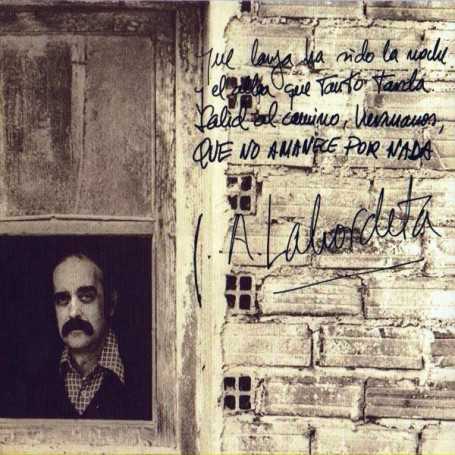 Que larga ha sido la noche
y el alba que tanto tarda.
Salid al camino, hermanos,
QUE NO AMANECE POR NADA
J.A. Labordeta